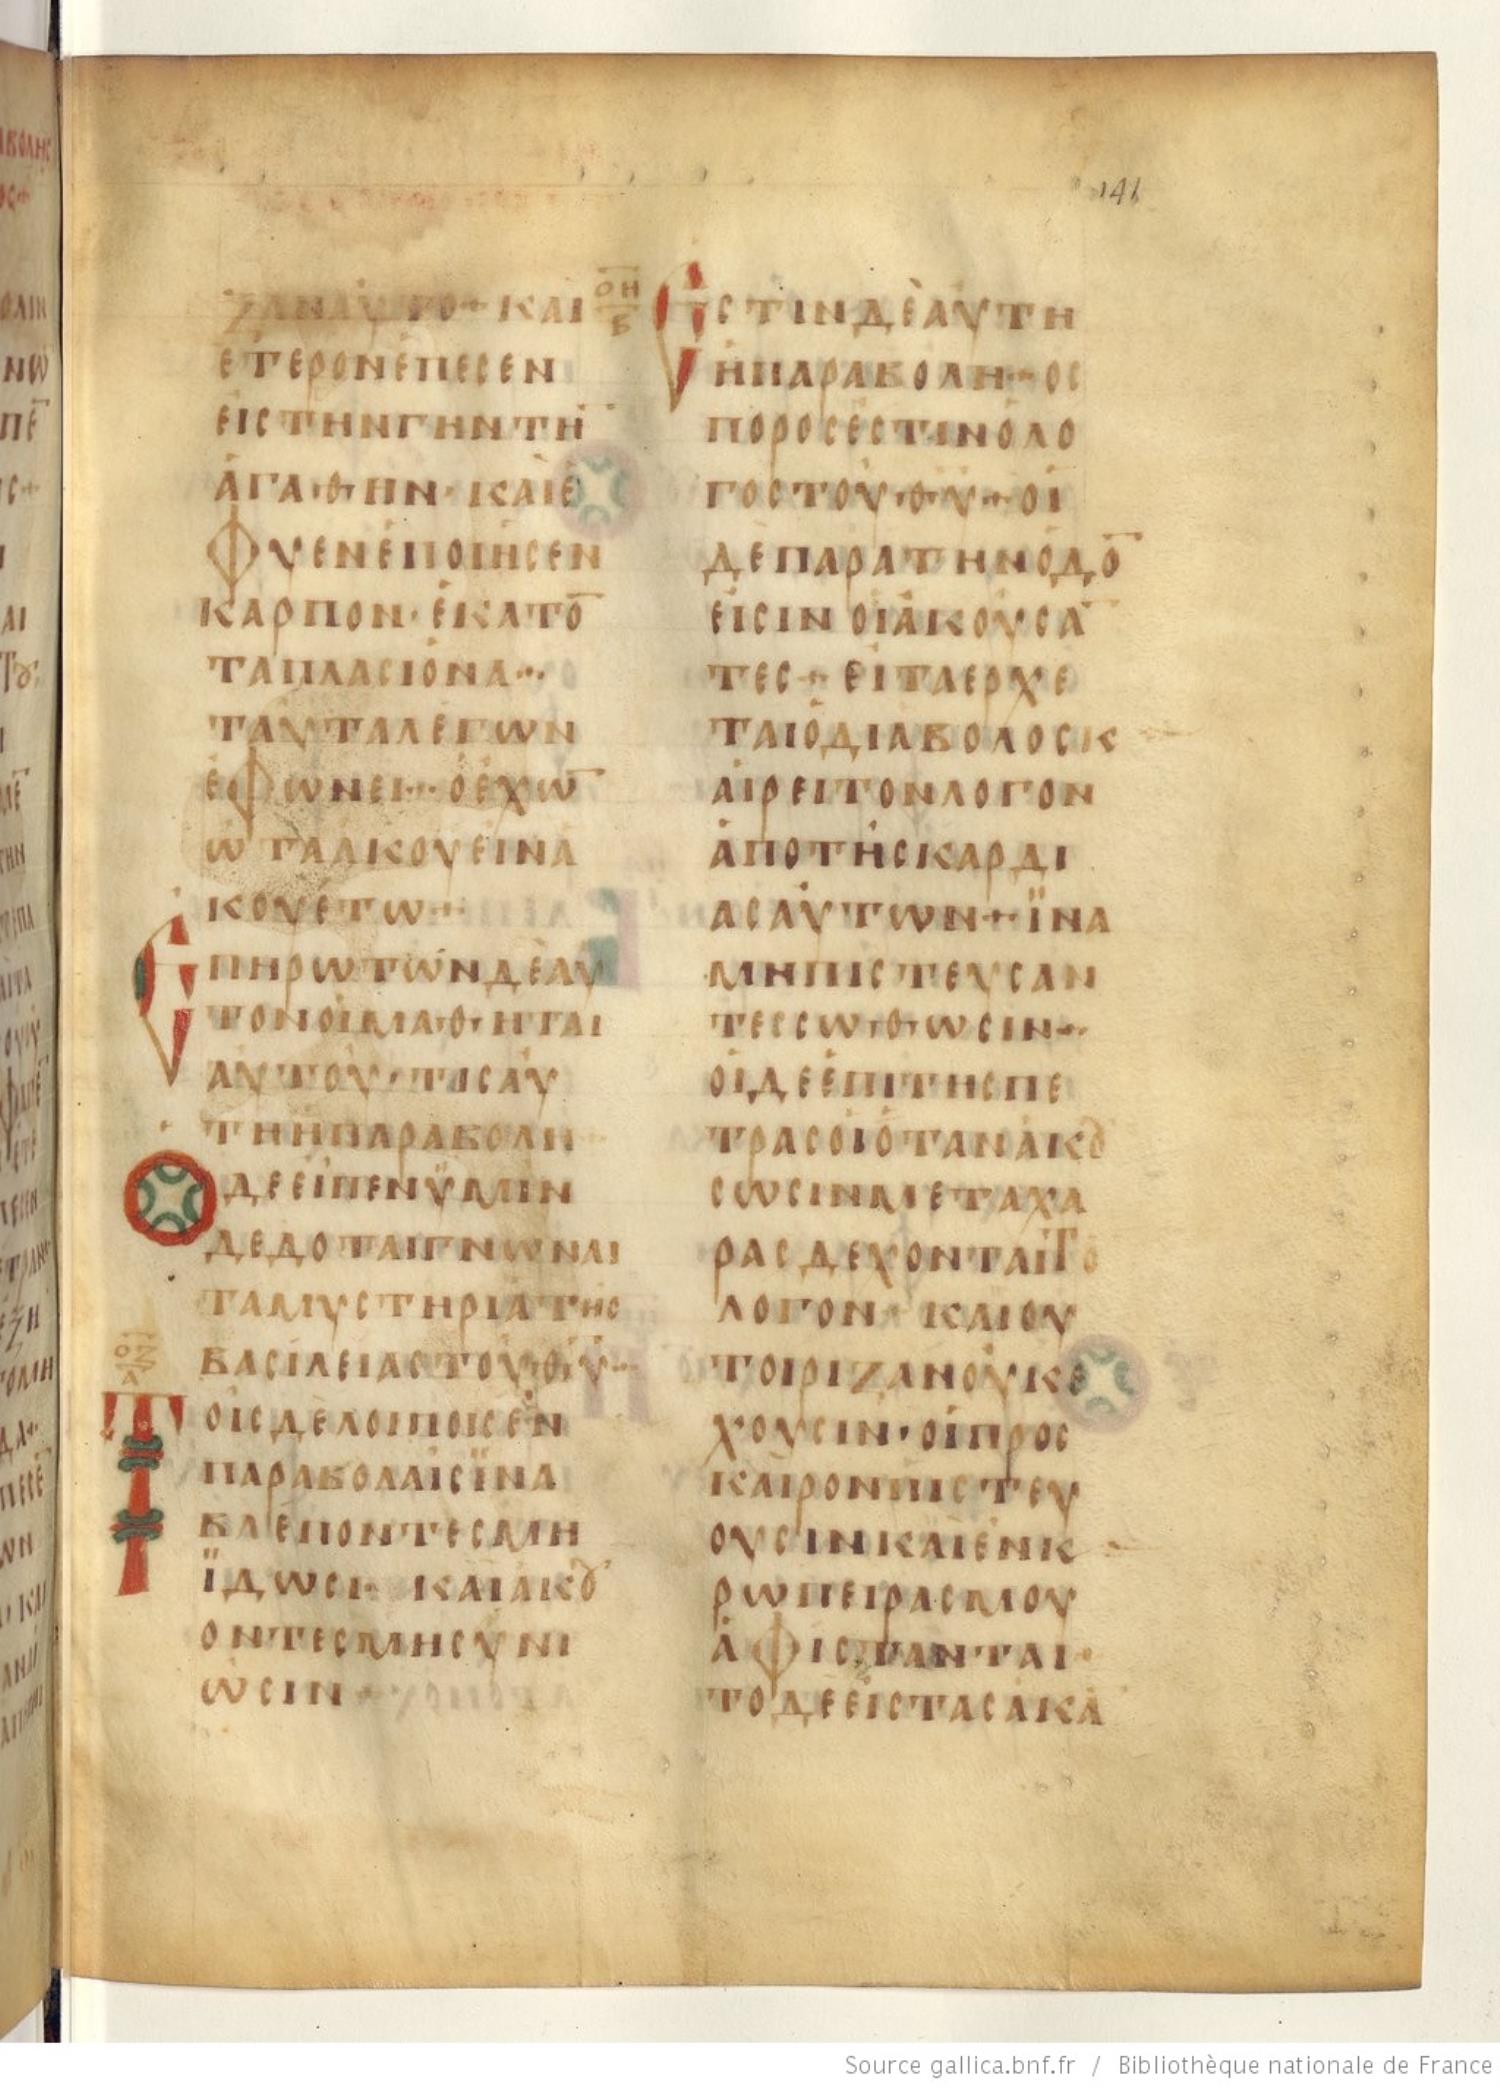 141
ΖΑΝΑΥΤΟ+ ΚΑΙ
ΕΤΕΡΟΝΕΠΕСΕΝ
ΕΙСΤΗΝΓΗΝΤΗ̄
ΑΓΑΘΗΝ· ΚΑΙΕ
ΦΥΕΝΕΠΟΙΗСΕΝ
ΚΑΡΠΟΝ· ΕΚΑΤΟ̄
ΤΑΠΛΑСΙΟΝΑ··
ΤΑΥΤΑΛΕΓΩΝ
ΕΦΩΝΕΙ·· ΟΕΧΩ̄
ΩΤΑΑΚΟΥΕΙΝΑ
ΚΟΥΕΤΩ+
ΕΠΗΡΩΤΩΝΔΕΑΥ
ΤΟΝΟΙΜΑΘΗΤΑΙ
ΑΥΤΟΥ· ΤΙСΑΥ
ΤΗΗΠΑΡΑΒΟΛΗ
ΟΔΕΕΙΠΕΝΫΜΙΝ
ΔΕΔΟΤΑΙΓΝΩΝΑΙ
ΤΑΜΥСΤΗΡΙΑΤΗС
ΒΑСΙΛΕΙΑСΤΟΥΘ̄Ῡ··
ΟΖ
Α
ΤΟΙСΔΕΛΟΙΠΟΙСΕΝ
ΠΑΡΑΒΟΛΑΙСΪΝΑ
ΒΛΕΠΟΝΤΕСΜΗ
ΪΔΩСΙ· ΚΑΙΑΚȢ
ΟΝΤΕСΜΗСΥΝΙ
ΩСΙΝ+
ΟΗ
Β
ΕСΤΙΝΔΕΑΥΤΗ
ΗΠΑΡΑΒΟΛΗ··ΟС
ΠΟΡΟСΕСΤΙΝΟΛΟ
ΓΟСΤΟΥΘ̄Ῡ+ΟΙ
ΔΕΠΑΡΑΤΗΝΟΔΟ̄
ΕΙСΙΝΟΙΑΚΟΥСᾹ
ΤΕС+ ΕΙΤΑΕΡΧΕ
ΤΑΙΟΔΙΑΒΟΛΟСΚ
ΑΙΡΕΙΤΟΝΛΟΓΟΝ
ΑΠΟΤΗСΚΑΡΔΙ
ΑСΑΥΤΩΝ+ΪΝΑ
ΜΗΠΙСΤΕΥСΑΝ
ΤΕССΩΘΩСΙΝ··
ΟΙΔΕΕΠΙΤΗСΠΕ
ΤΡΑСΟΙΟΤΑΝΑΚȢ
СΩСΙΝΜΕΤΑΧΑ
ΡΑСΔΕΧΟΝΤΑΙΤΟ
ΛΟΓΟΝ· ΚΑΙΟΥ
ΤΟΙΡΙΖΑΝΟΥΚΕ
ΧΟΥСΙΝ·ΟΙΠΡΟС
ΚΑΙΡΟΝΠΙСΤΕΥ
ΟΥСΙΝΚΑΙΕΝΚ
ΡΩΠΕΙΡΑСΜΟΥ
ΑΦΙСΤΑΝΤΑΙ·
ΤΟΔΕΕΙСΤΑСΑΚᾹ
Source gallica.bnf.fr / Bibliothèque nationale de France